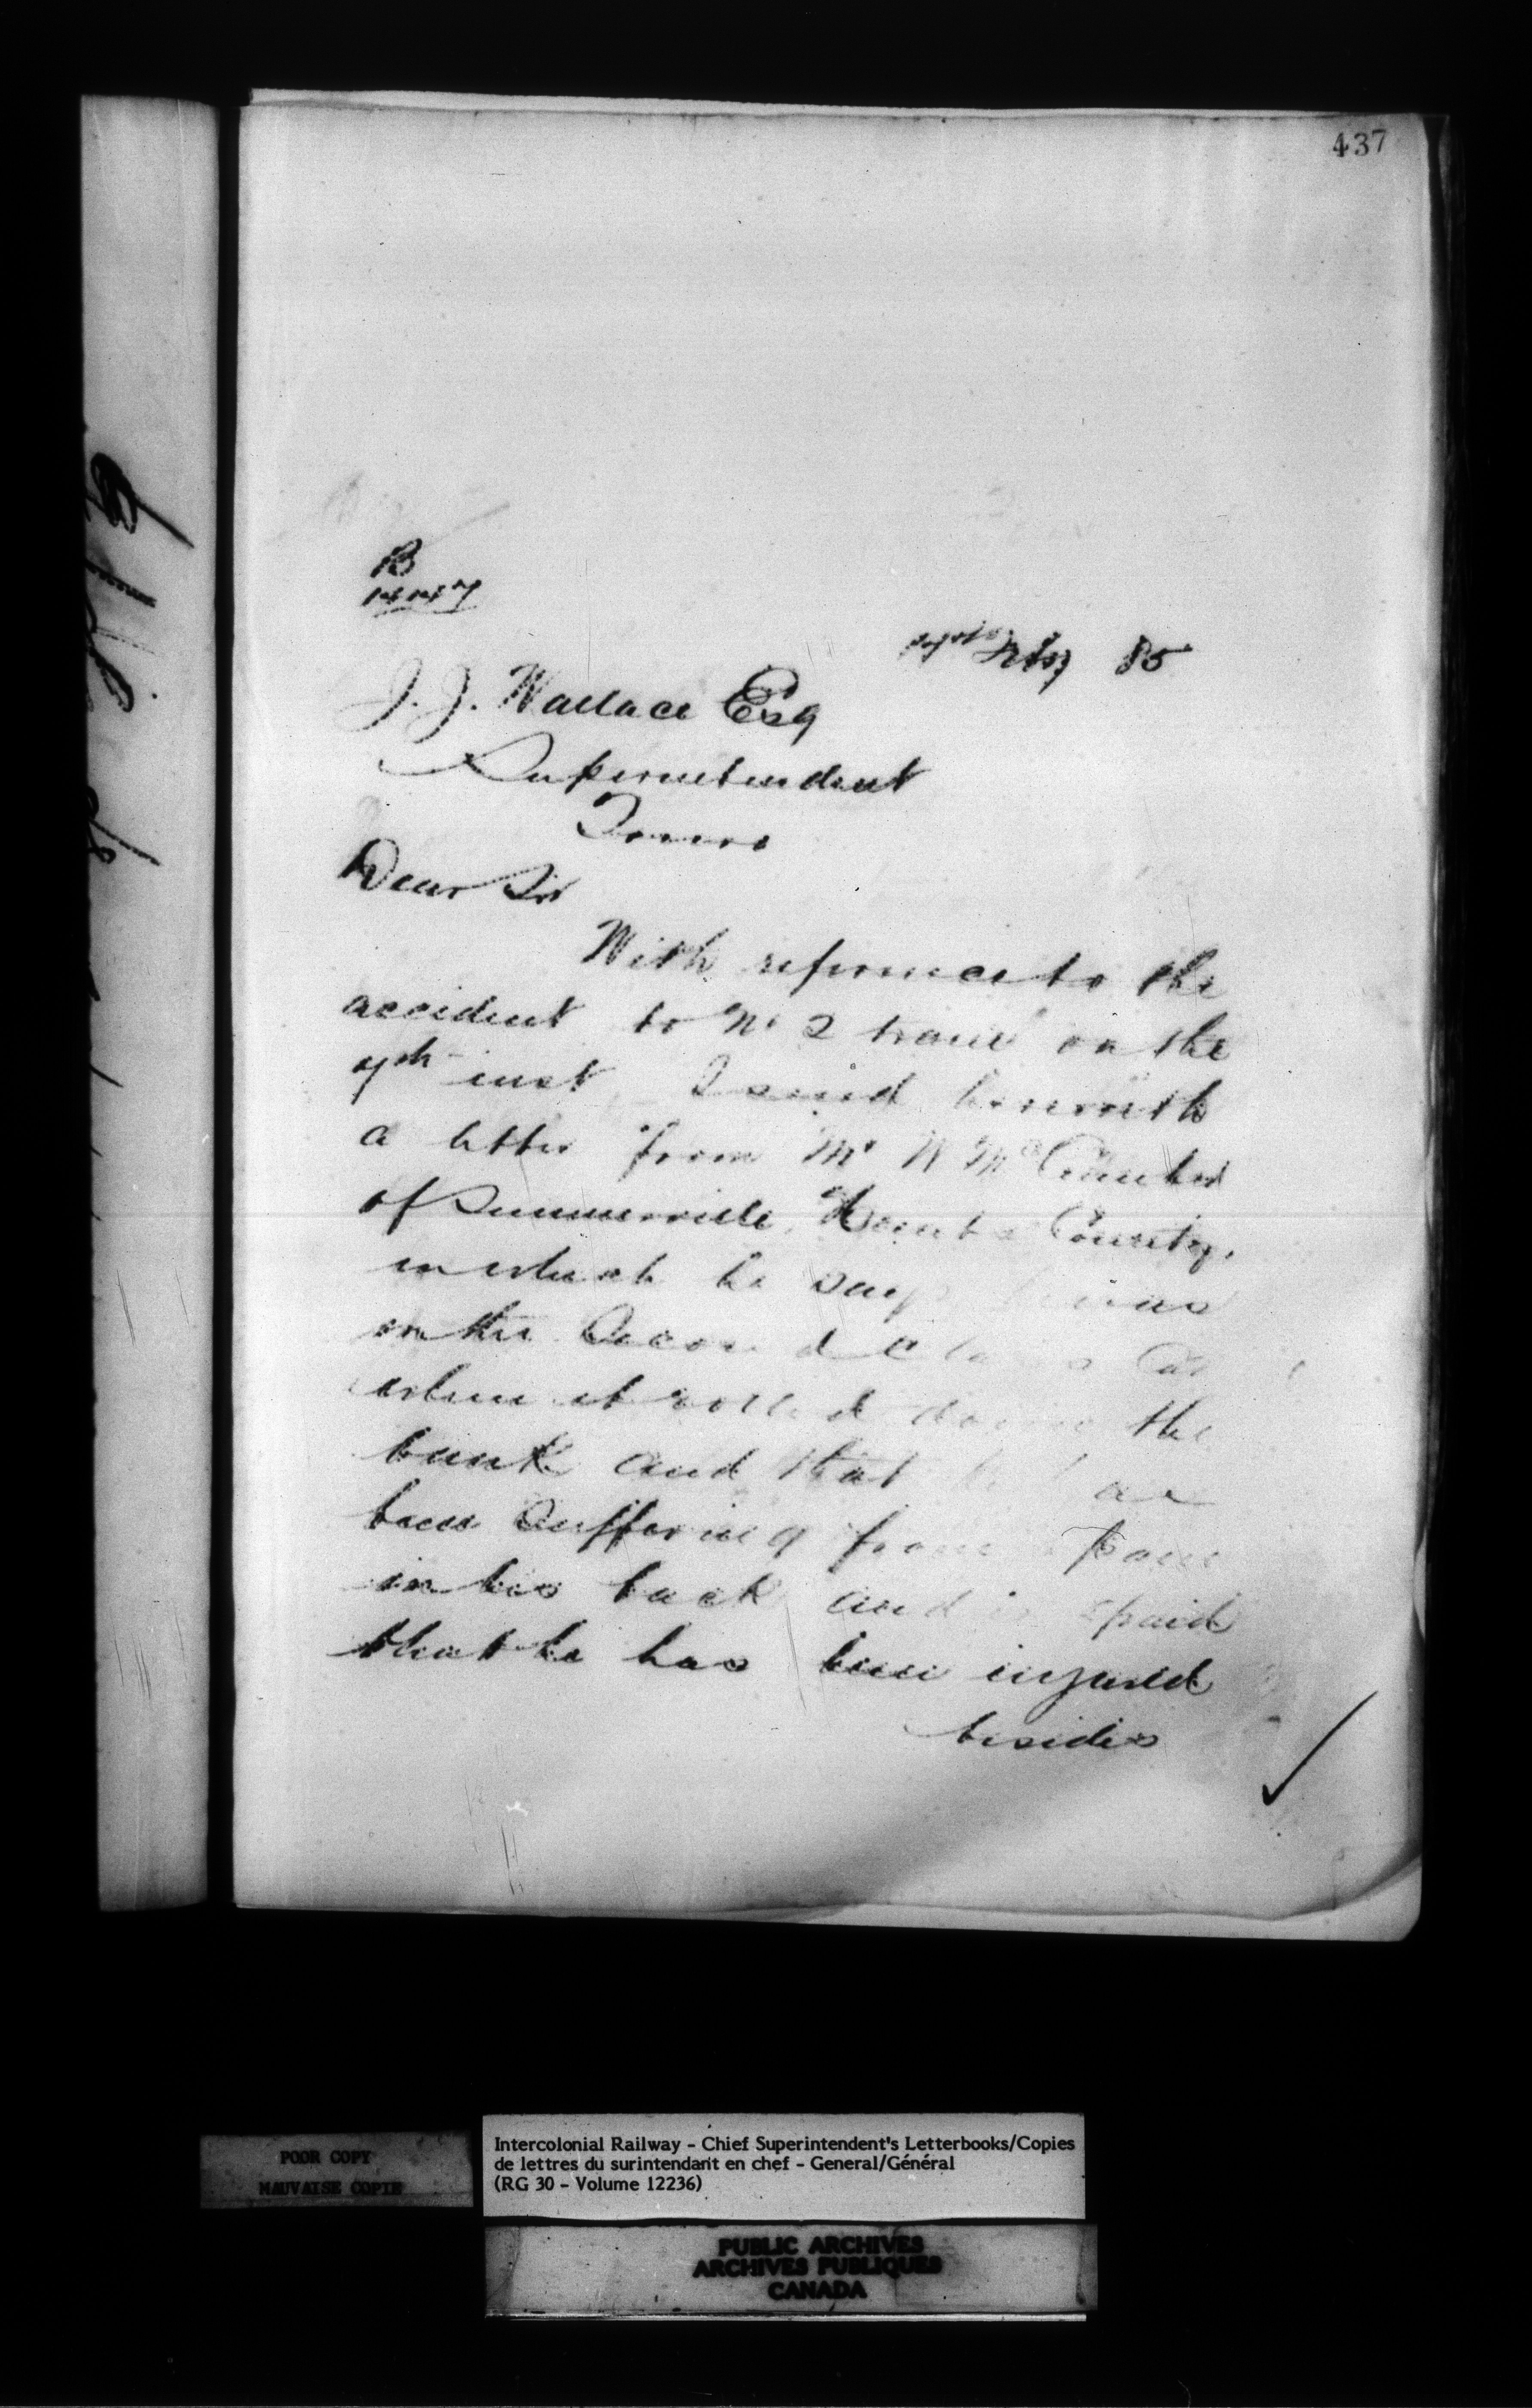 437
B
14147
Feby 85
J. J. Wallace Esq
Superintendent
Truro
Dear Sir
With reference to the
accident to No 2 train on the
7th inst, I send herewith
a letter from Mr W Mc
of Summerville, Hants County,
in which he says he was
in the Second Class Car
when it rolled down the
bank and that he has
been suffering from pain
in his back and is afraid
that he has been injured
besides
POOR COPY
MAUVAISE COPIE
Intercolonial Railway - Chief Superintendent's Letterbooks/Copies
de lettres du surintendant en chef - General/Général
(RG 30 - Volume 12236)
PUBLIC ARCHIVES
ARCHIVES PUBLIQUES
CANADA